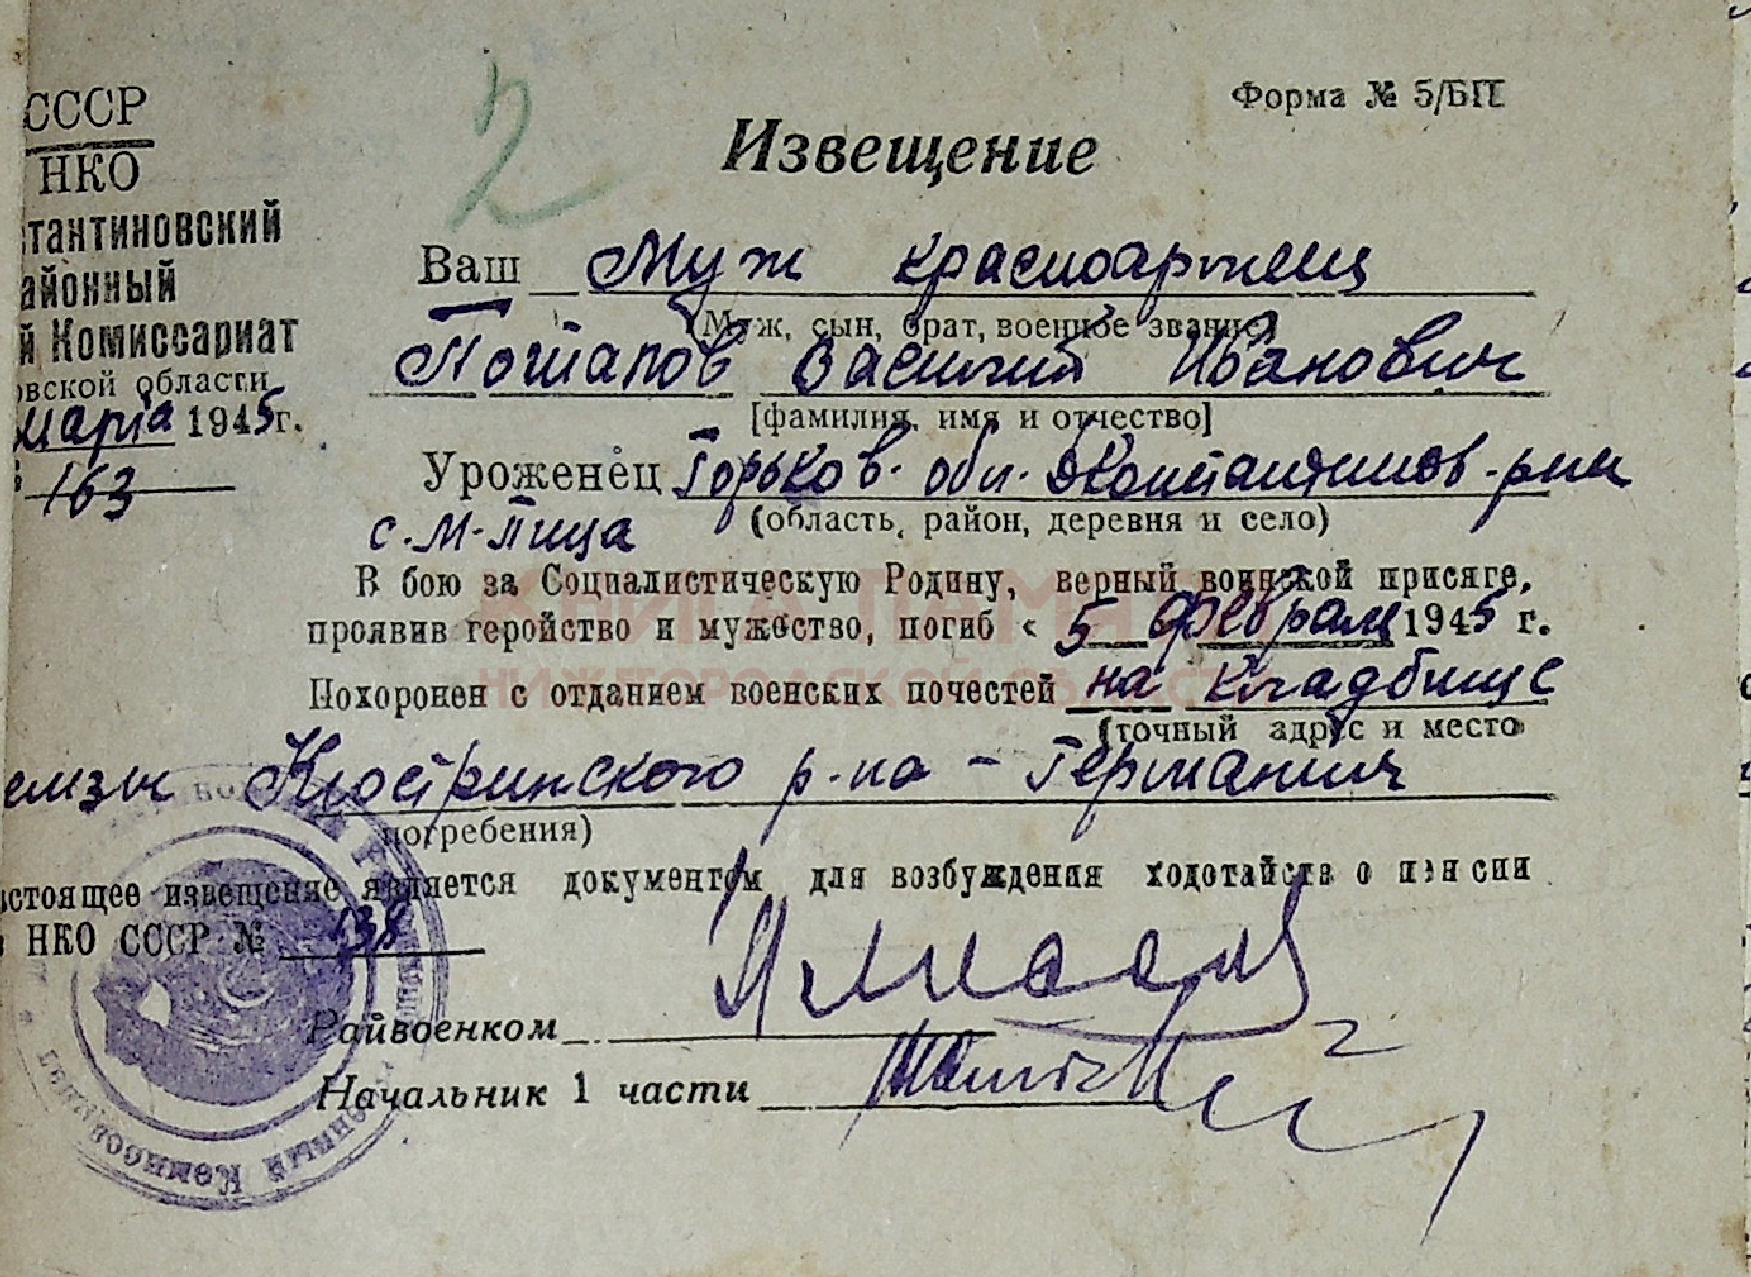 СССР
НКО
тантиновский
айонный
й Комиссариат
овской области
марта 1945 г.
163
2
Форма № 5/БП
Извещение
Ваш Муж красноармеец
(Муж, сын, брат, военное звание)
Потапов Василий Иванович
[фамилия, имя и отчество]
Уроженец Горьков. обл. Константинов. р-на
(область, район, деревня и село)
с. М-Пица
В бою за Социалистическую Родину, верный воинской присяге,
проявив геройство и мужество, погиб « 5 февраля 1945 г.
Похоронен с отданием военских почестей на кладбище
(точный адрес и место
емзы Кюстринского р-на - Германия
погребения)
астоящее извещение является документом для возбуждения ходотайства о пенсии
НКО СССР № 138
Райвоенком
Начальник 1 части
КНИГА ПАМЯТИ
НИЖЕГОРОДСКОЙ ОБЛАСТИ